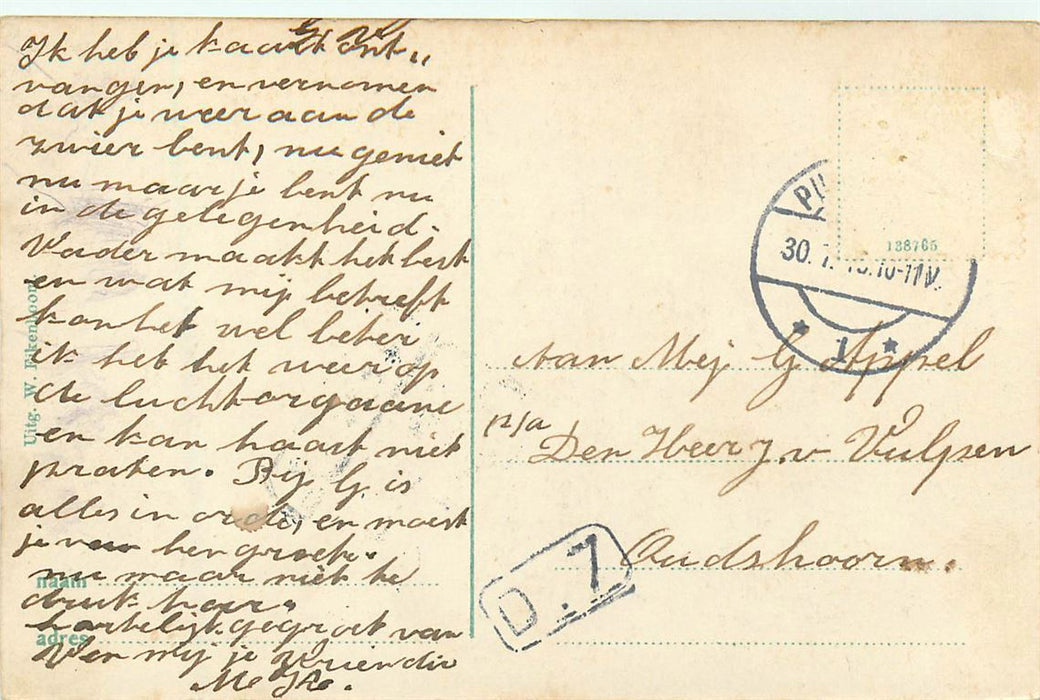 G V
Ik heb je kaart ont„
vangen, en vernomen
dat je weer aan de
zwier bent, nu geniet
nu maar je bent nu
in de gelegenheid.
Vader maakt het best
en wat mij betreft
kon het wel beter
ik heb het weer op
de luchtorgaane
en kan haast niet
praten. Bij G is
alles in orde, en moest
je van hen groete.
nu maar niet te
druk hoor.
hartelijk gegroet van
Ver mij je Vriendin
Me
Uitg. W. Eikenhoorn
naam
adres
138765
30. 10-11V.
1
Aan Mej G Appel
p/a
Den Heer J. v Vulpen
Oudshoorn.
D. 7